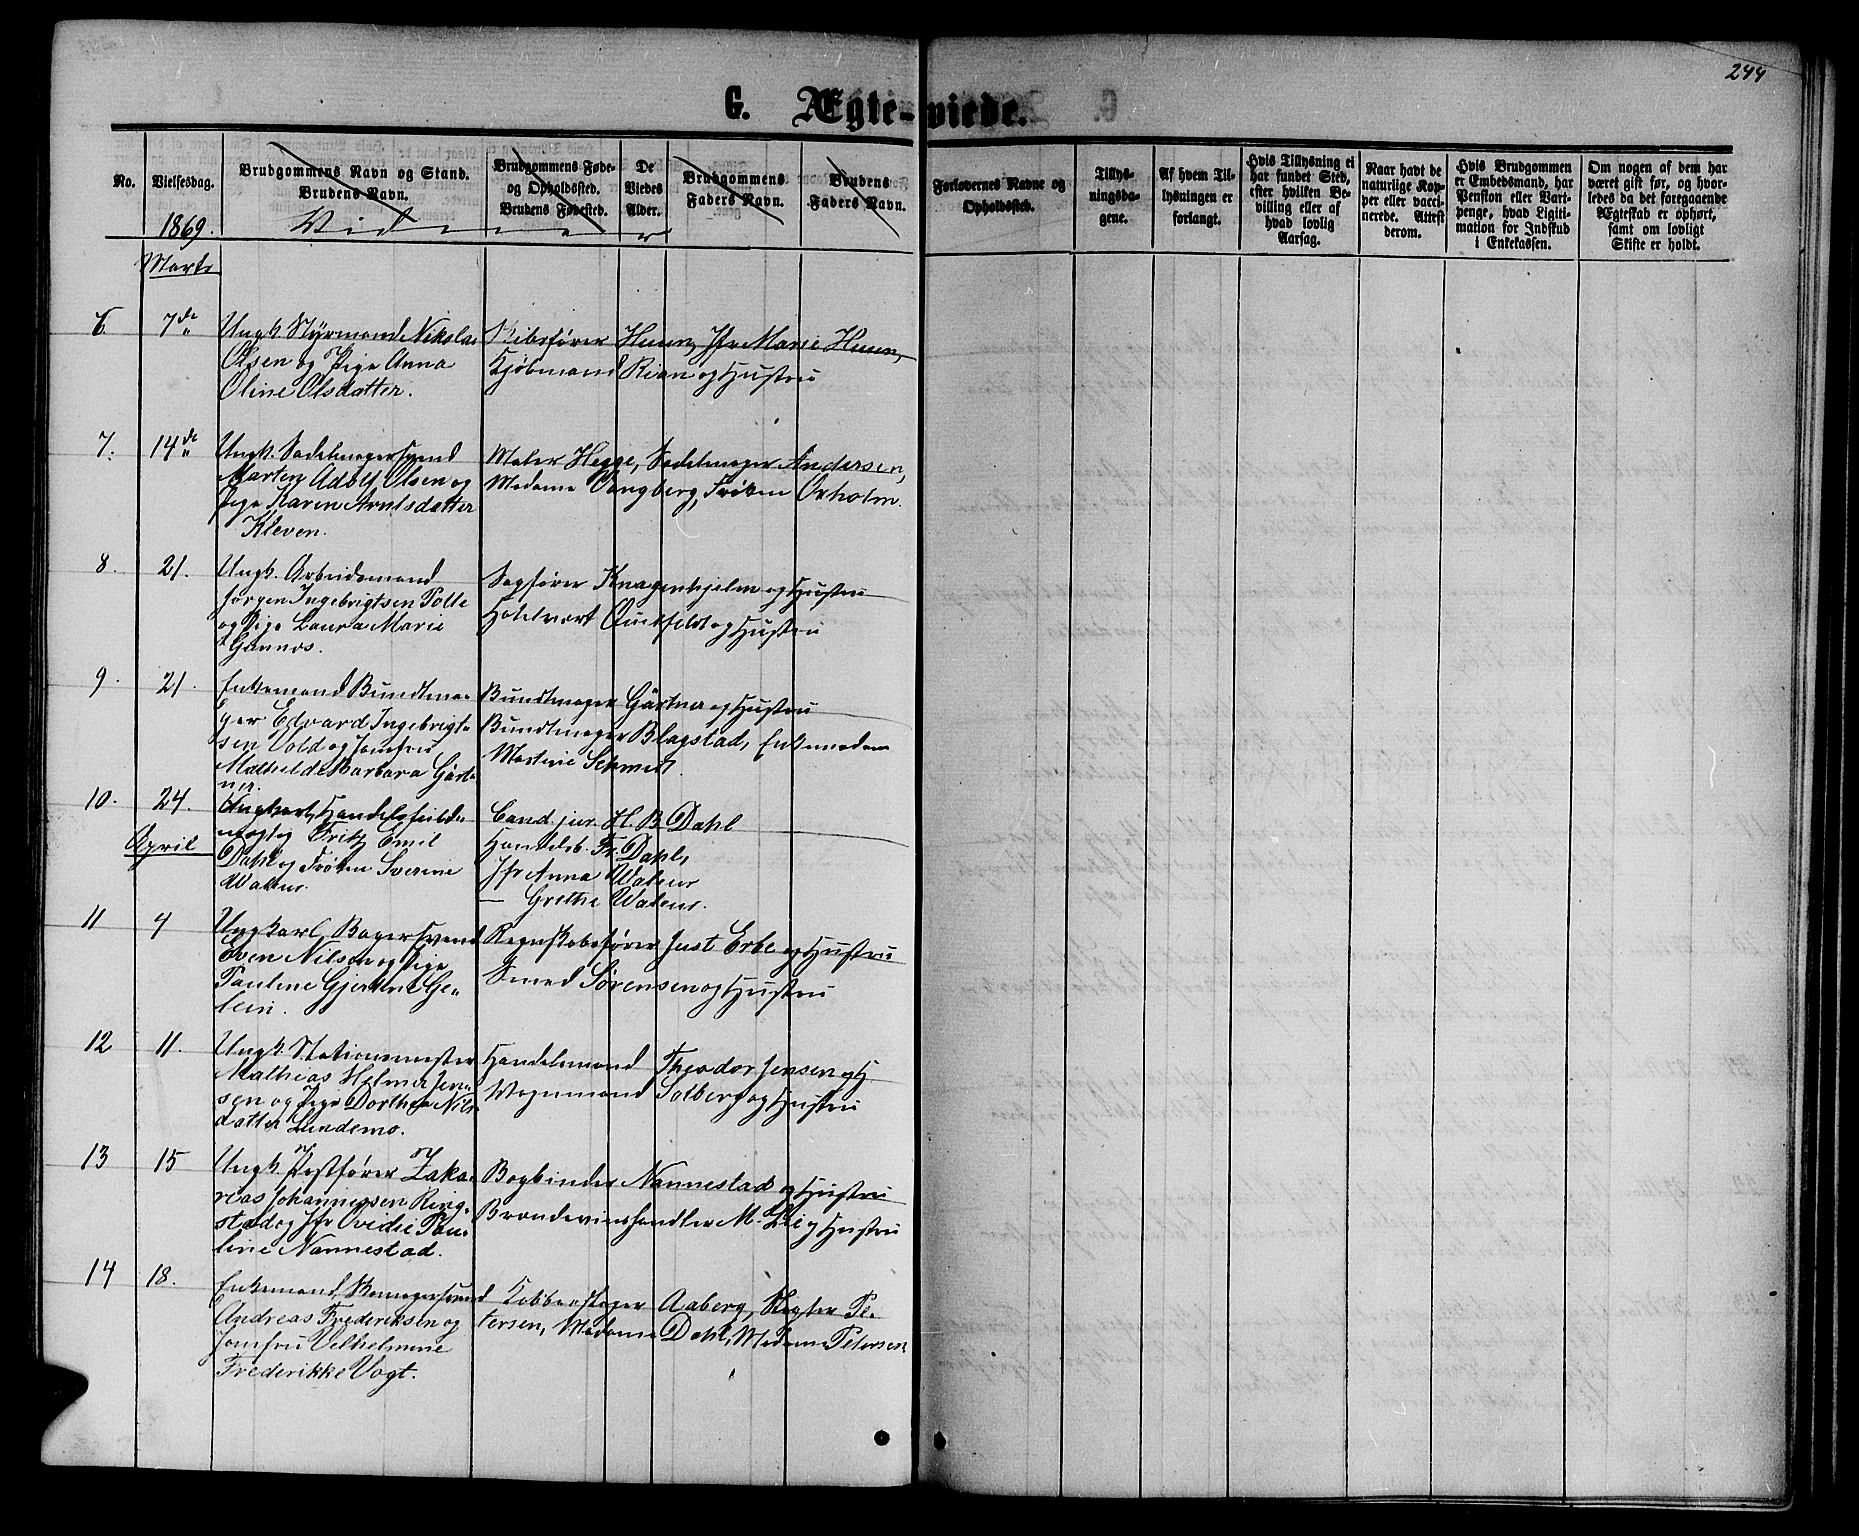 244
G. Ægte-viede.
No.
Vielsesdag.
Brudgommens Navn og Stand.
Brudens Navn.
Brudgommens Føde-
og Opholdssted.
Brudens Fødested.
De
Viedes
Alder.
Brudgommens
Faders Navn.
Brudens
Faders Navn.
Forlovernes Navne og
Opholdssted.
Tillys-
ningsda-
gene.
Af hvem Til-
lysningen er
forlangt.
Hvis Tillysning ei
har fundet Sted,
efter hvilken Be-
villing eller af
hvad lovlig
Aarsag.
Naar havt de
naturlige Kop-
per eller vacci-
nerede. Attest
derom.
Hvis Brudgommen
er Embedsmand, har
Pension eller Vart-
penge, hvad Ligiti-
mation for Indskud
i Enkekassen.
Om nogen af dem har
været gift før, og hvor-
ledes da det foregaaende
Ægteskab er ophørt,
samt om lovligt
Skifte er holdt.
1869.
Vidner
Marts
6 7de Ungk. Styrmand Nikolai
Olsen og Pige Anna
Oline Olsdatter.
Skibsfører Huun, Jfr Marie Huun,
Kjøbmand Rian og Hustru
7. 14de Ungk. Sadelmagersvend
Marten Adolf Olsen og
Pige Karen Arntsdatter
Kleven.
Maler Hegge, Sadelmager Andersen,
Madame Vangberg, Frøken Oxholm.
8. 21. Ungk. Arbeidsmand
Jørgen Ingebrigtsen Polle
og Pige Laura Marie
Sagfører Knagenhjelm og Hustru
Hotelvert Quisfeldt og Hustru
9. 21. Enkemand Bundtma-
ger Edvard Ingebrigt-
sen Vold og Jomfru
Mathilde Barbara Gärt-
ner.
Bundtmager Gärtner og Hustru
Bundtmager Blagstad, Enkemadam
Martine Schmidt
10. 24. Ungkarl, Handelsfuld-
mægtig Fritz Emil
Dahl og Frøken Sverine
Walseur.
Cand. jur. H. B. Dahl
Handelsb. Fr. Dahl,
Jfr Anna Walseur
— Grethe Walseur.
April
11 4 Ungkarl Bagersvend
Even Nilsen og Pige
Pauline Gjertine Ge-
lein.
Regnskabsfører Just Erbe og Hustru
Smed Sørensen og Hustru
12 11. Ungk. Stationsmester
Mathias Helmer Jen-
sen og Pige Dorthea Nils-
datter Lundemo.
Handelsmand Theodor Jensen og H.
Vognmand Solberg og Hustru
13 15 Ungk. Postfører Zaka-
rias Johannessen Ring-
stad og Jfr Ovidie Pau-
line Nannestad.
Bogbinder Nannestad og Hustru
Brændevinshandler M. Lie og Hustru
14 18. Enkemand, Skomagersvend
Andreas Frederiksen og
Jomfru Vilhelmine
Frederikke Vogt.
Kobberslager Aaberg, Slagter Pe-
tersen, Madame Dahl, Madame Petersen